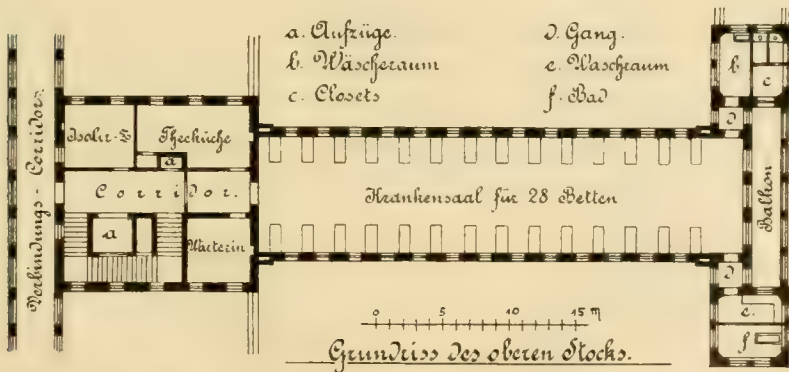 a. Aufzüge.
b. Wäscheraum
c. Closets
d. Gang.
e. Waschraum
f. Bad
Verbindungs-Corridor.
Isolir-Z
Theeküche
a
Corridor.
a
Wärterin
Krankensaal für 28 Betten
b
c
d
Balkon
d
e.
f
0 5 10 15 m
Grundriss des oberen Stocks.